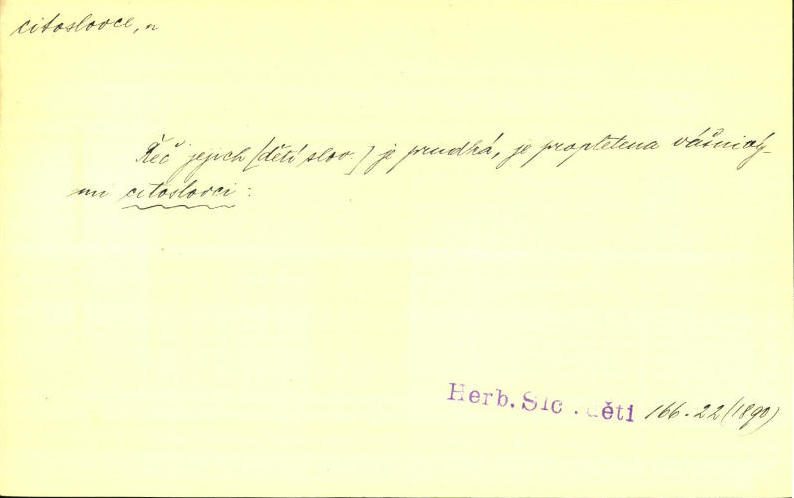 citoslovce, n
Řeč jejich [dětí slov.] je prudká, je propletena vášnivý-
mi citoslovci :
Herb. Slo . děti 166.22 (1890)